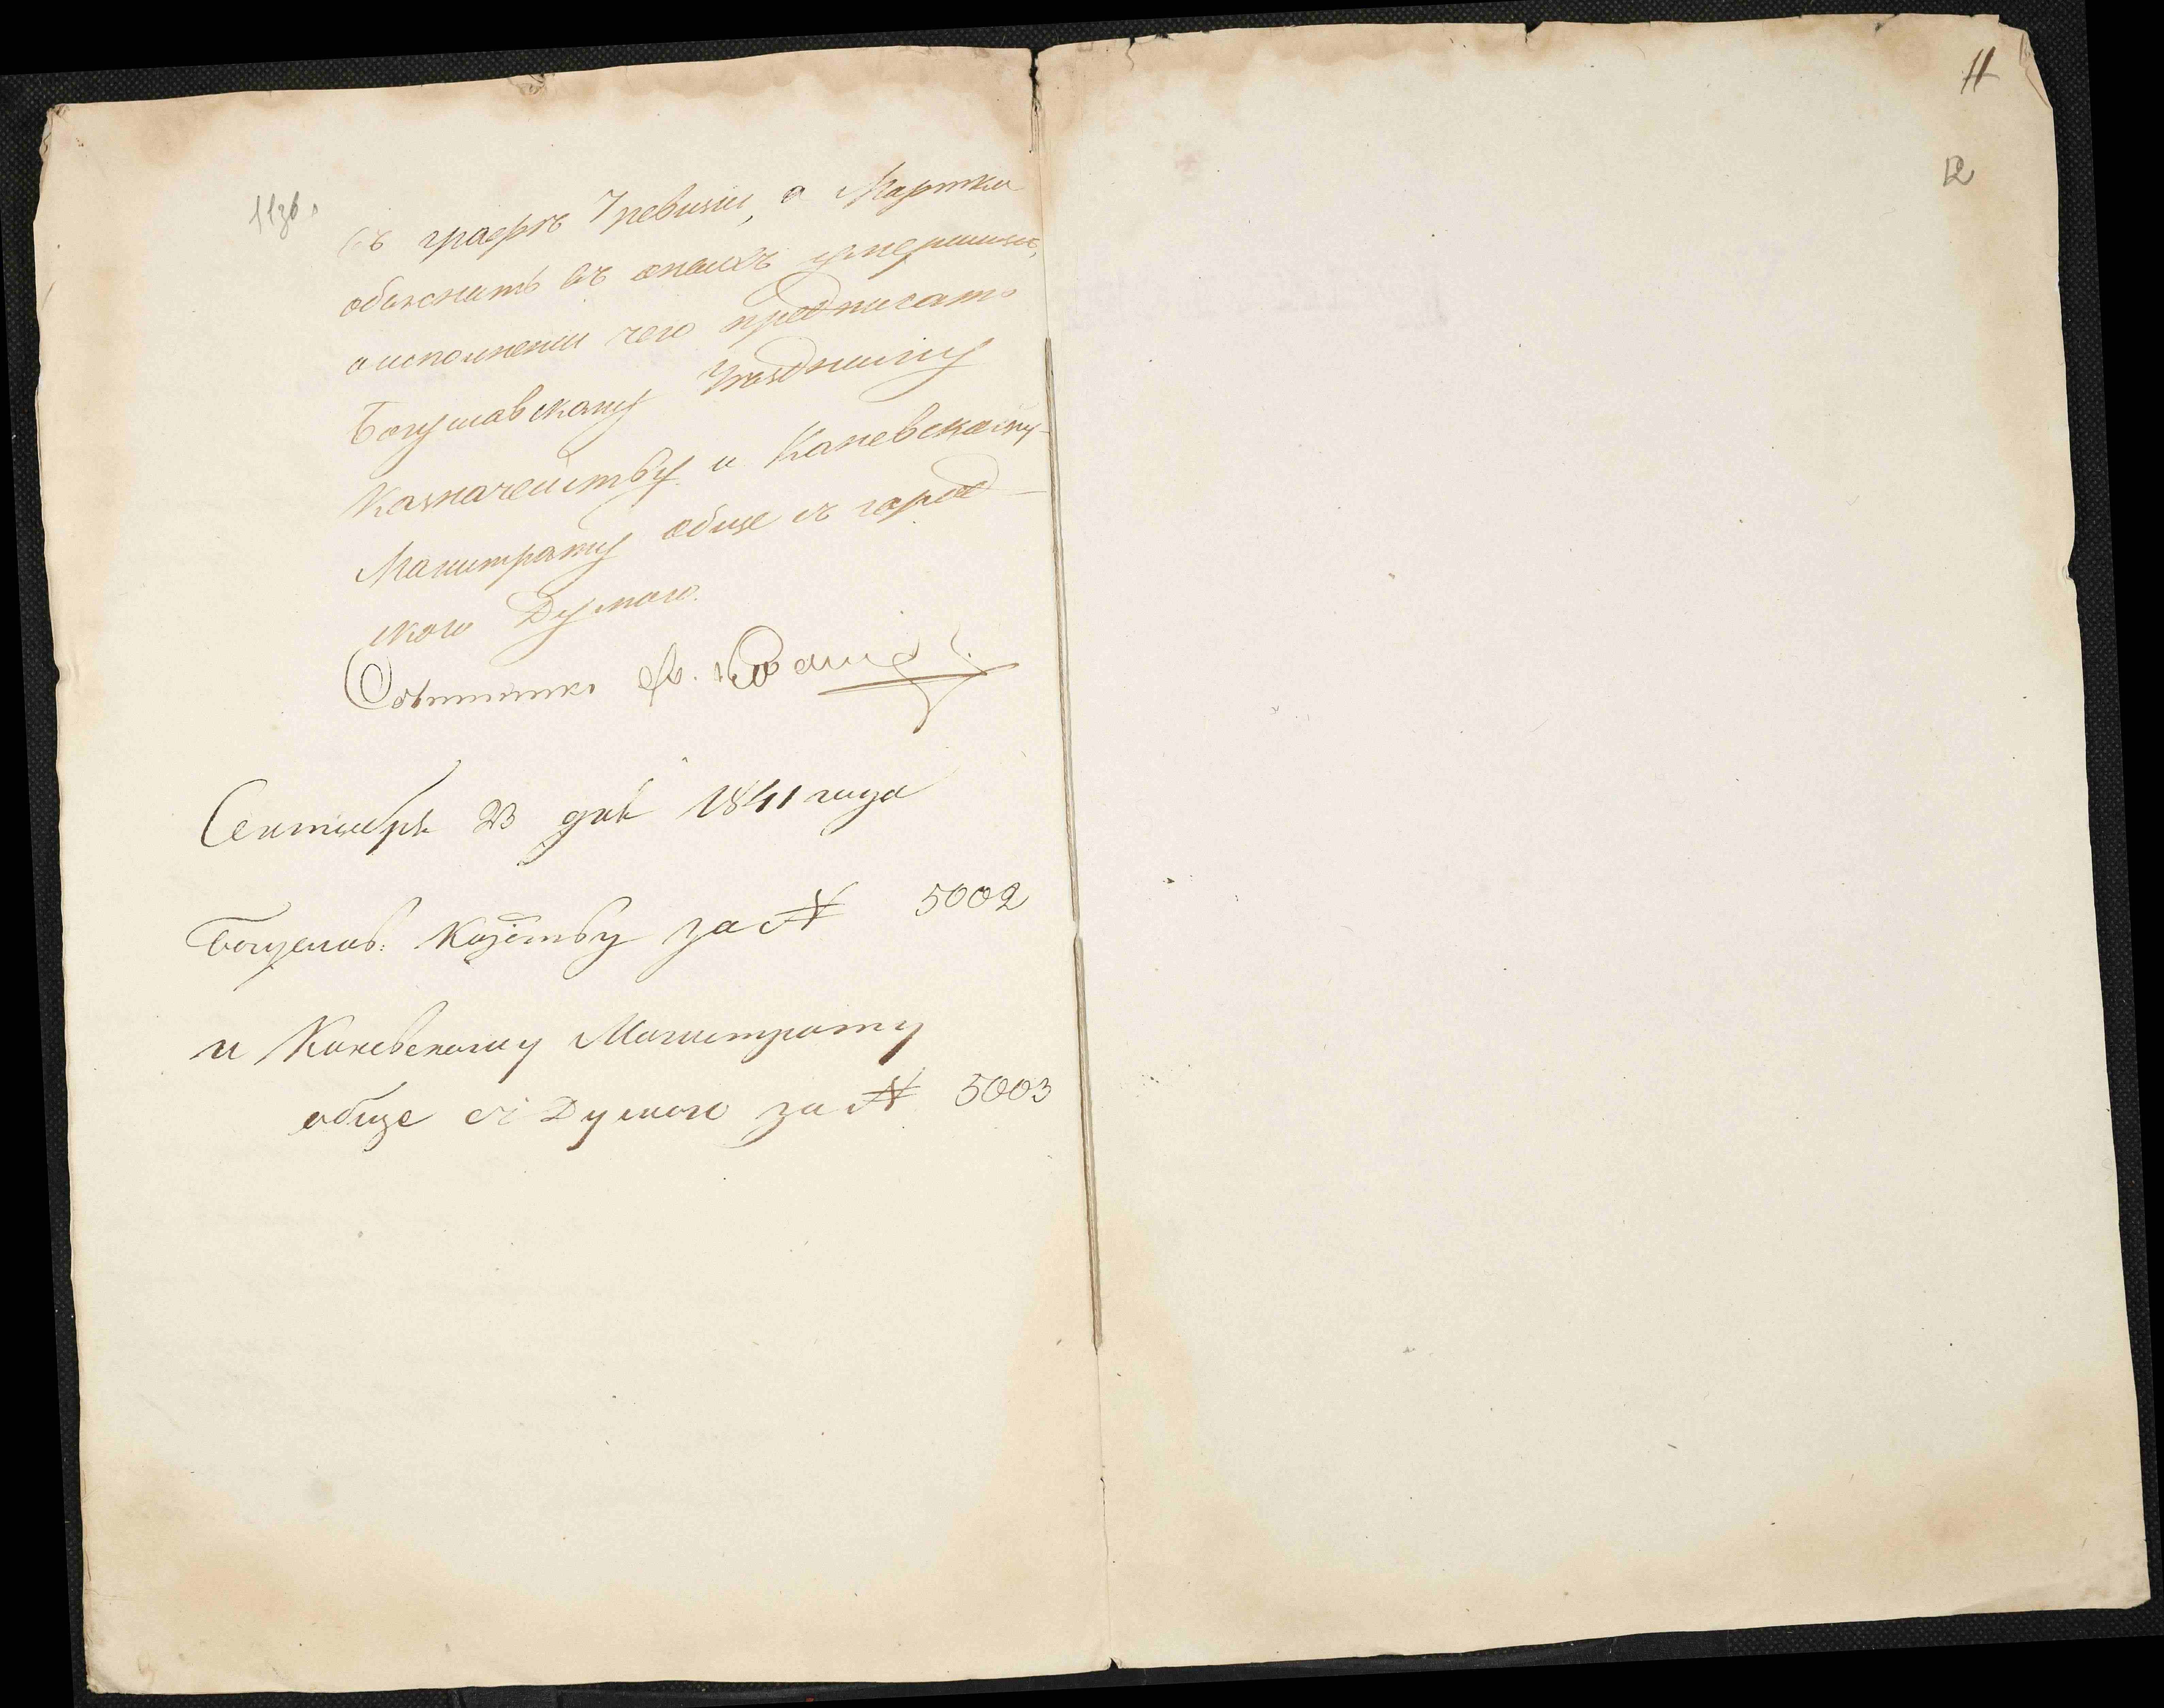 11зв.
въ графѣ 7 ревизіи, а Мартка
объяснить въ оныхъ умершимъ,
о исполненіи чего предписать
Богуславскому Уѣздному
Казначейству и Каневскому
Магистрату обще съ город-
ского Думою.
Совѣтникъ
Сентября 23 дня 1841 года
Богуслав. Каз͞ству за № 5002
и Каневскому Магистрату
обще съ Думою за № 5003
11
12